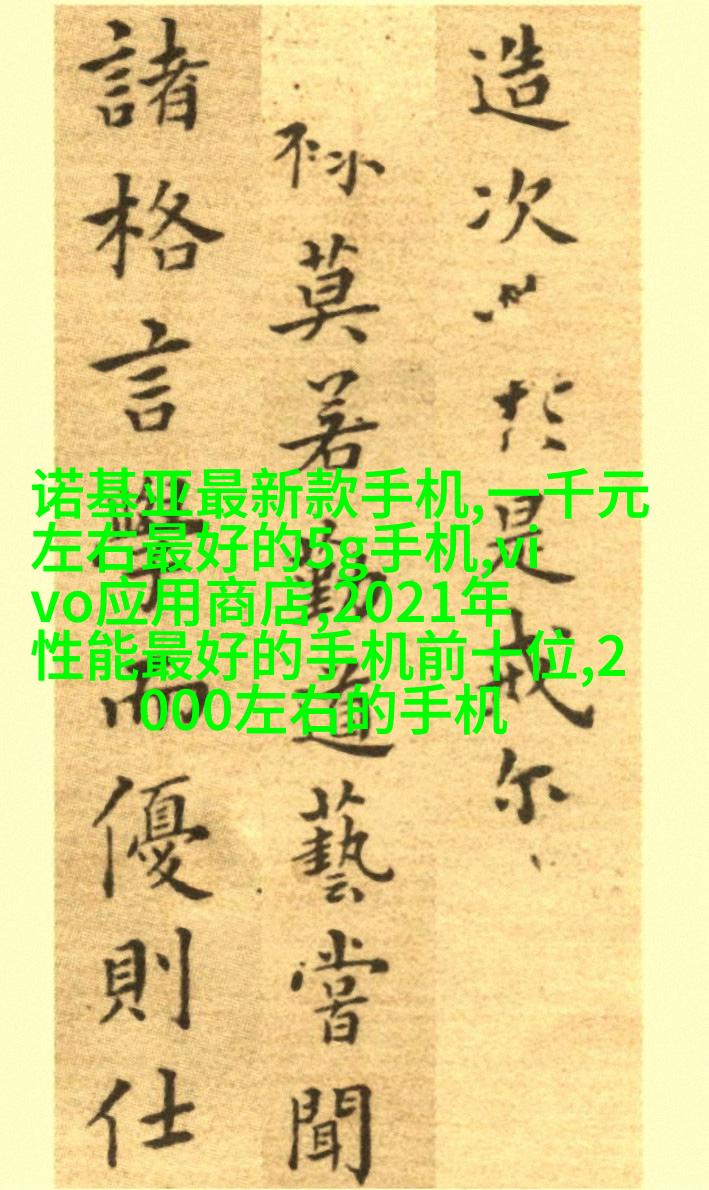 造次必於是戒尔
莫若勤道藝嘗聞
諸格言學而優則仕
诺基亚最新款手机,一千元
左右最好的5g手机,vi
vo应用商店,2021年
性能最好的手机前十位,2
000左右的手机